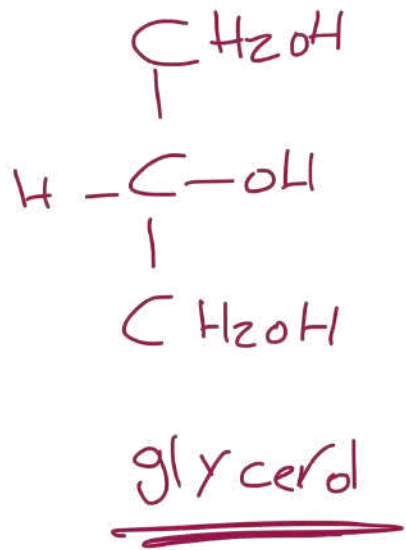 CH2OH
H-C-OH
CH2OH
glycerol